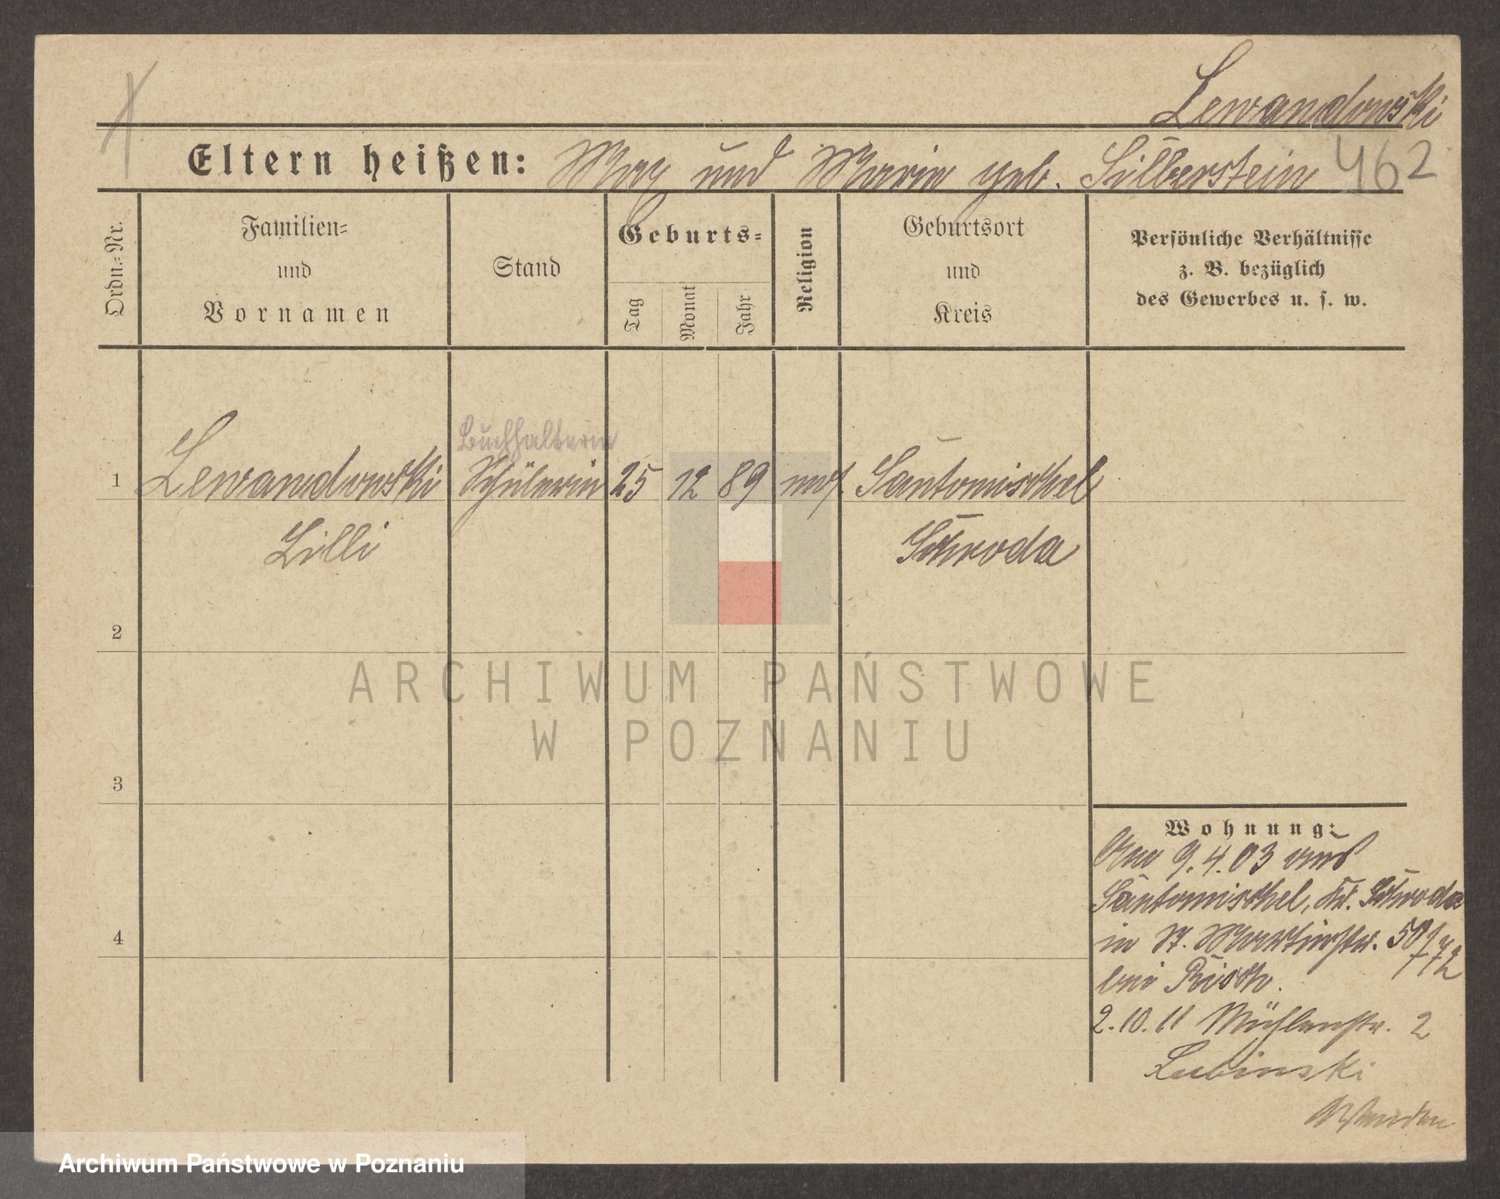 Lewandowski
Eltern heißen: Max und Marie geb. Silberstein 462
Ordn.-Nr.
Familien-
und
Vornamen
Stand
Geburts-
Tag
Monat
Jahr
Religion
Geburtsort
und
Kreis
Persönliche Verhältnisse
z. B. bezüglich
des Gewerbes u. s. w.
Buchhalterin
1 Lewandowski Schülerin 25 12 89 mos. Santomischel
Lilli Schroda
2
ARCHIWUM PAŃSTWOWE
W POZNANIU
3
4
Wohnung:
Am 9.4.03 aus
Santomischel, Kr. Schroda
in St. Martinstr. 50/
bei Risch.
2.10.11 Mühlenstr. 2
Lubinski
Archiwum Państwowe w Poznaniu